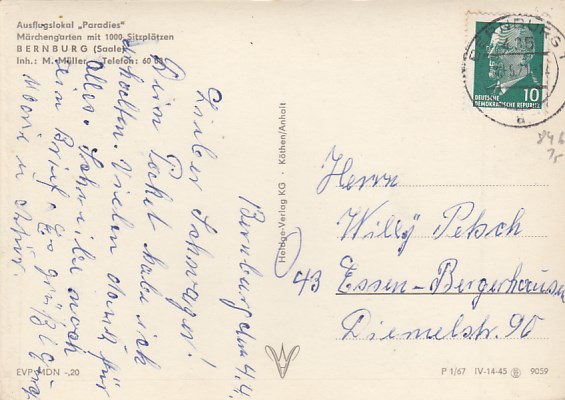 Ausflugslokal „Paradies"
Märchengarten mit 1000 Sitzplätzen
BERNBURG (Saale)
Inh.: M. Müller Telefon: 60 68
Bernburg den 4.4.
Lieber Schwager!
Dein Packet habe ich
erhalten. Vielen dank für
alles. Schreibe noch
ein Brief. Es grüßt
EVP MDN -,20
Heldge-Verlag KG · Köthen/Anhalt
BERNBURG 1
10
DEUTSCHE
DEMOKRATISCHE REPUBLIK
a
Herrn
Willy Petsch
43 Essen-Bergerhausen
Diemelstr. 90
P 1/67 IV-14-45 9059